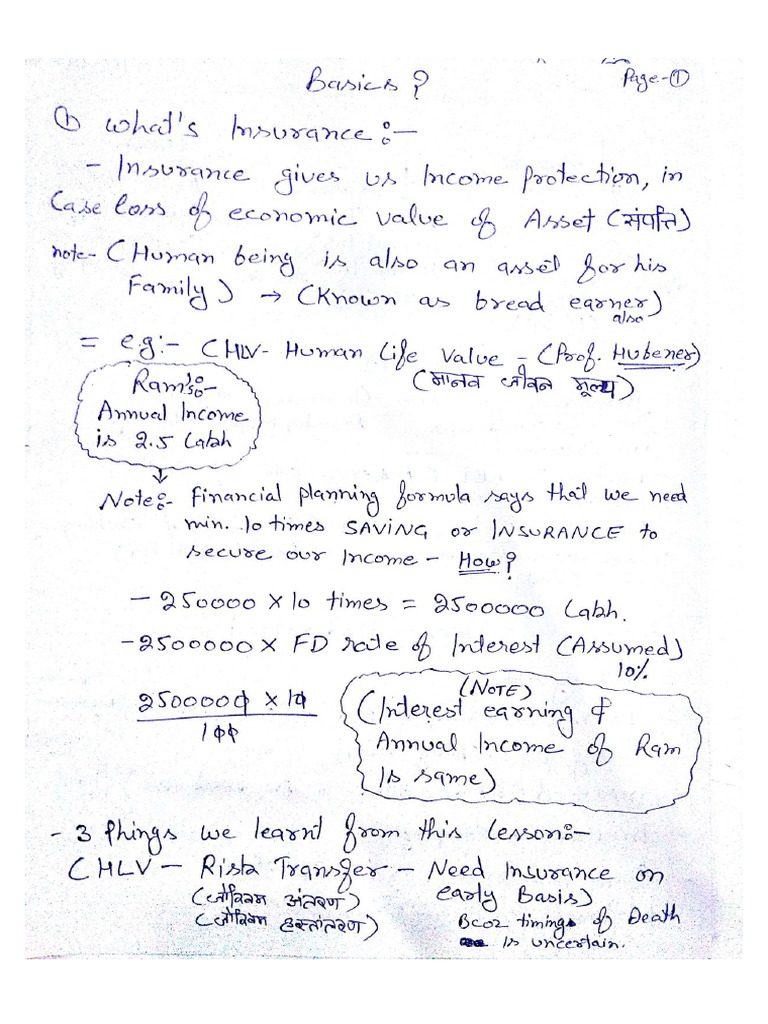 Basics?
Page-①
① What's Insurance:-
- Insurance gives us Income Protection, in
Case loss of economic value of Asset (संपत्ति)
note- (Human being is also an asset for his
Family) → (Known as bread earner)
also
= e.g:- CHLV- Human Life Value - (Prof. Hubener)
(मानव जीवन मूल्य)
Ram's:-
Annual Income
is 2.5 Lakh
Note:- Financial planning formula says that we need
min. 10 times SAVING or INSURANCE to
secure our Income - How?
- 250000 × 10 times = 2500000 Lakh.
- 2500000 × FD rate of Interest (Assumed)
10%
2500000 × 10
100
(NOTE)
(Interest earning &
Annual Income of Ram
Is same)
- 3 things we learnt from this Lesson:-
CHLV - Risk Transfer - Need Insurance on
early Basis)
(जोखिम अंतरण)
(जोखिम हस्तांतरण)
Bcoz timings of Death
is uncertain.